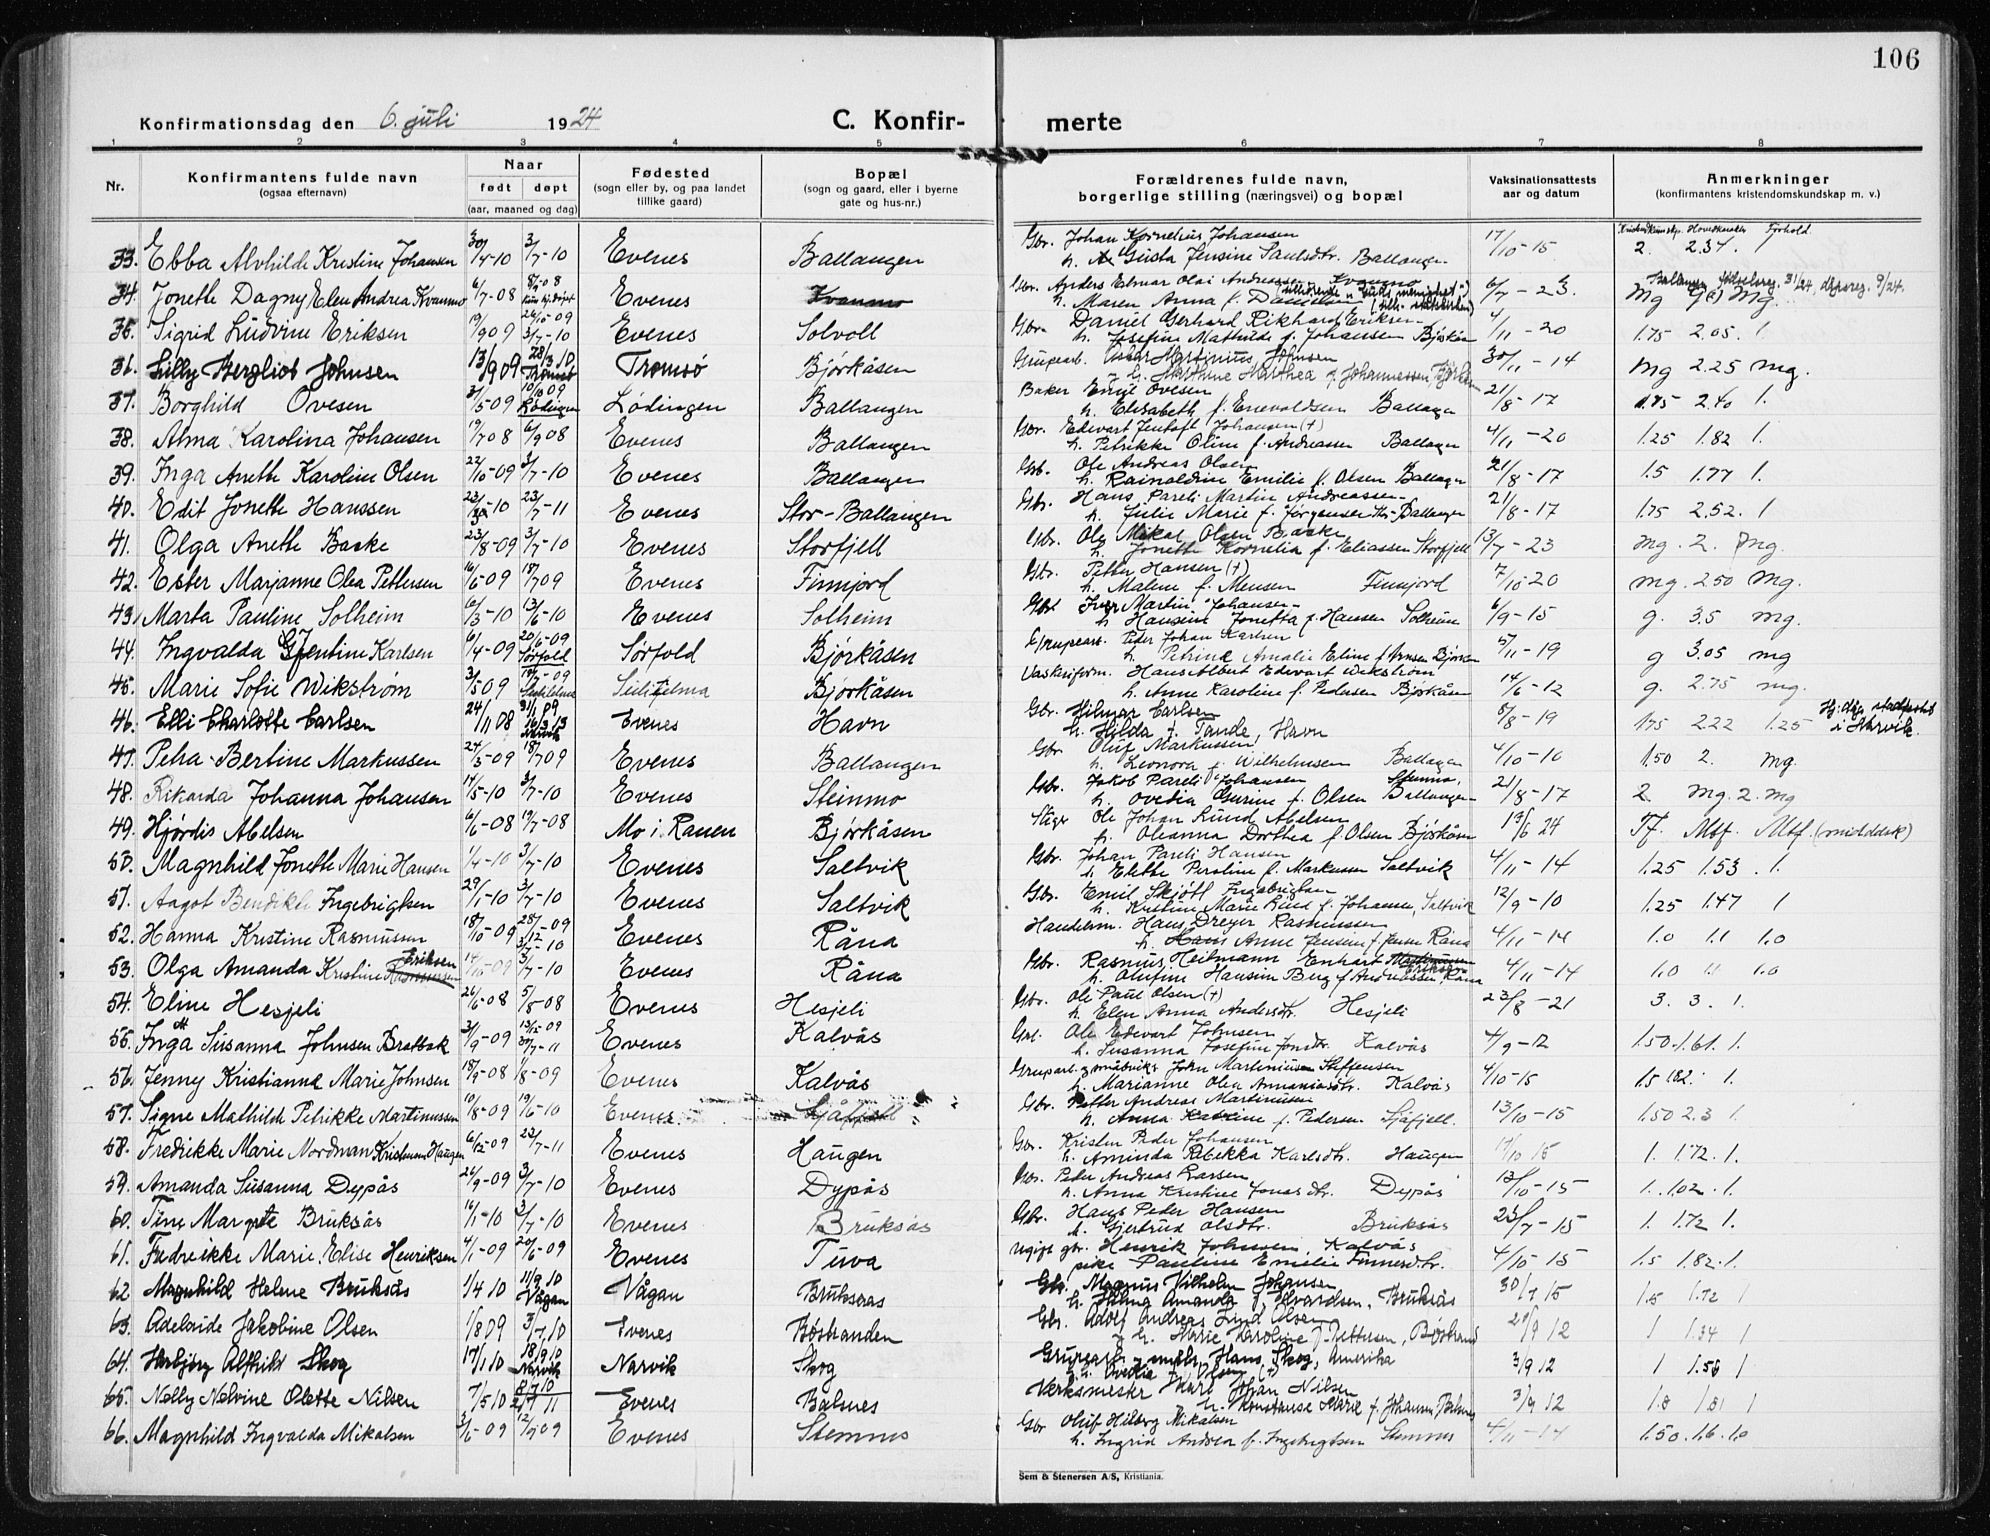 106
Konfirmationsdag den 6. juli 1924
C. Konfir- merte
1 2 3 4 5 6 7 8
Nr. Konfirmantens fulde navn (ogsaa efternavn) Naar født døpt (aar, maaned og dag) Fødested (sogn eller by, og paa landet tillike gaard) Bopæl (sogn og gaard, eller i byerne gate og hus-nr.) Forældrenes fulde navn, borgerlige stilling (næringsvei) og bopæl Vaksinationsattests aar og datum Anmerkninger (konfirmantens kristendomskundskap m. v.)
33. Ebba Alvhilde Kristine Johansen 30/4-10 3/7-10 Evenes Ballangen Gbr. Johan Kornelius Johansen 17/10-15 2. 2.37.
h. Gusta Jensine Paulsdtr. Ballangen
34. Jonette Dagny Elen Andrea Kvanmo 6/7-08 Evenes Kvanmo Gbr. Anders Elmar Olai Andreassen 6/7-23. Mg Mg.
h. Maren Anna f. Danielsen
35. Sigrid Ludvine Eriksen 19/9 09 3/7-10 Evenes Solvoll Gbr. Daniel Gerhard Rikhard Eriksen 4/11-20 1.75 2.05. 1.
h. Josefine Mathilde f. Johansen Bjørkåsen
36. Lilly Bergliot Johnsen 13/9 09 28/3 10 Tromsø Tromsø Bjørkåsen Grupearb. Oskar Martinius Johnsen 30/11-14 Mg 2.25 Mg.
37. Borghild Ovesen 31/5 09 10/10 09 Lødingen Lødingen Ballangen Baker Emil Ovesen 21/8-17 1.75 2.40 1.
h. Elisabeth f. Enevoldsen Ballangen
38. Alma Karolina Johansen 19/7 08 6/9 08 Evenes Ballangen Gbr. Edevart Jentoft Johansen (†) 4/11-20 1.25 1.82 1.
h. Petrikke Oline f. Andreassen Ballangen
39. Inga Anette Karoline Olsen 22/10-09 3/7-10 Evenes Ballangen Gbr. Ole Andreas Olsen 21/8-17 1.5 1.77 1.
h. Rainoldine Emilie f. Olsen Ballangen
40. Edit Jonette Hanssen 23/3-10 23/7-11 Evenes Stor-Ballangen Gbr. Hans Pareli Martin Andreassen 21/8-17 1.75 2.52. 1
h. Julie Marie f. Jørgensen St.-Ballangen
41. Olga Anette Baske 23/8-09 3/7-10 Evenes Storfjell Gbr. Ole Mikal Olsen Baske 13/7-23 mg. 2. mg.
h. Jonette Kornelia f. Eliassen Storfjell
42. Ester Marjanne Olea Pettersen 16/6 09 18/7 09 Evenes Finnjord Gbr. Petter Hansen (†) 7/10-20 mg. 2.50 mg.
h. Malene f. Mensen Finnjord
43. Marta Pauline Solheim 6/3-10 13/6-10 Evenes Solheim Gbr. Iver Martin Johansen 6/9-15 g. 3.5 mg.
h. Hansine Jonetta f. Hansen Solheim
44. Ingvalda Jentine Karlsen 6/4-09 20/6-09 Sørfold Sørfold Bjørkåsen Grupearb. Peder Johan Karlsen 5/11-19 g 3.05 mg
h. Petrine Amalie Eline f. Arnsen Bjørkåsen
45. Marie Sofie Wikstrøm 3/5 09 Sulitjelma Bjørkåsen Vaskeriform. Hans Albert Edevart Wikstrøm 14/6-12 g. 2.75 mg.
h. Anne Karoline f. Pedersen Bjørkåsen
46. Elli Charlotte Carlsen 24/11 08 Evenes Havn Gbr. Hilmar Carlsen 8/8-19 1.75 2.22 1.25 i Narvik.
h. Hilda f. Tande, Havn
47. Petra Bertine Markussen 24/3-09 18/7 09 Evenes Ballangen Gbr. Oluf Markussen 4/10-10 1.50 2. mg.
h. Leonora f. Wilhelmsen Ballangen
48. Rikarda Johanna Johansen 17/5-10 3/7-10 Evenes Steinmo Gbr. Jakob Pareli Johansen Stenmo, 21/8-17 2. mg. 2. mg
h. Ovedia Gurine f. Olsen Ballangen
49. Hjørdis Abelsen 6/6-08 19/7-08 Mo i Ranen Bjørkåsen Stiger Ole Johan Lund Abelsen 13/6 24 Tf. Mtf. Mtf. (middels)
h. Oleanna Dorthea f. Olsen Bjørkåsen
50. Magnhild Jonette Marie Hansen 1/4-10 3/7-10 Evenes Saltvik Gbr. Johan Pareli Hansen 4/11-14 1.25 1.53. 1.
h. Elette Peroline f. Markussen Saltvik
51. Aagot Bendikte Ingebrigtsen 29/1-10 3/7-10 Evenes Saltvik Gbr. Emil Skjøtt Ingebrigtsen 12/9-10 1.25 1.47 1
h. Kristine Marie Lund f. Johansen, Saltvik
52. Hanna Kristine Rasmussen 18/10-09 28/12-09 3/7-10 Evenes Råna Handelsm. Hans Dreyer Rasmussen 4/11-14 1.0 1.1 1.0
h. Anne Jensine f. Jensen Råna
53. Olga Amanda Kristine Rasmussen Eriksen 14/10-09 3/7-10 Evenes Råna Gbr. Rasmus Heitmann Enhart Eriksen 4/11-14 1.0 1.1 1.0
h. Olufine Hansine Berg f. Andreassen, Råna
54. Eline Hesjeli 26/6-08 5/8-08 Evenes Hesjeli Gbr. Ole Paul Olsen (†) 23/8-21 3. 3. 1.
h. Elen Anna Andersdtr. Hesjeli
55. Inga Susanna Johnsen Bratbak 3/9-09 13/12-09 30/7-11 Evenes Kalvås Gbr. Ole Edevart Johnsen 4/9-12 1.50. 1.61. 1.
h. Susanna Josefine Jonsdtr. Kalvås
56. Jenny Kristianne Marie Johnsen 18/9-08 1/8-09 Evenes Kalvås Gruparb. og småbruker John Martinusen Steffensen 4/10-15 1.5 1.82. 1.
h. Marianne Olea Annaniasdtr. Kalvås
57. Signe Mathilde Petrikke Martinussen 10/8-09 19/6-10 Evenes Sjåfjell Gbr. Petter Andreas Martinussen 13/10-15 1.50 2.3 1.
h. Anna Katrine f. Pedersen Sjåfjell.
58. Fredrikke Marie Nordman Kristensen Haugen 6/12-09 23/7-11 Evenes Haugen Gbr. Kristen Peder Johansen 17/10 15 1. 1.72. 1.
h. Aminda Rebekka Karlsdtr. Haugen
59. Amanda Susanna Dypås 26/9-09 3/7-10 Evenes Dypås Gbr. Peder Andreas Larsen 13/10-15 1. 1.02. 1.
h. Anna Kristine Jonasdtr. Dypås
60. Tine Margrete Bruksås 16/1-10 3/7-10 Evenes Bruksås Gbr. Hans Peder Hansen 23/7-15 1. 1.72 1.
h. Gjertrud Olsdtr. Bruksås
61. Fredrikke Marie Elise Henriksen 4/1-09 20/6-09 Evenes Tuva Ugift gbr. Henrik Johnsen, Kalvås 4/10-15 1.5 1.82. 1.
pike Pauline Emilie Finnesdtr.
62 Magnhild Helene Bruksås 1/4 10 11/9 10 Vågan Vågan Bruksaas Gbr. Magnus Vilhelm Johansen 30/7 15 1.5 1.72 1
h. Halma Amanda f. Edvardsen, Bruksås
63. Adelaide Jakobine Olsen 1/8 09 3/7 10 Evenes Bøstranden Gbr. Adolf Andreas Lind Olsen 29/9 12 1 1.34 1
h. Marie Karoline f. Pettersen, Bøstrand
64. Herbjørg Alfhild Skog 17/1 10 18/9 10 Narvik Narvik Skog Grupearb. Hans Skog, Amerika 3/9 12 1 1.58 1
h. Ovedie f. Olsen (†)
65. Nelly Nelvine Olette Nilsen 7/5 10 Evenes Balsnes Verksmester Karl Johan Nilsen 3/9 12 1.0 1.01 1
h. Konstanse Marie f. Johansen, Balsnes
66. Magnhild Ingvalda Mikalsen 3/6-09 12/9 09 Evenes Stemnes Gbr Oluf Hilberg Mikalsen 4/11-14 1.50. 1.6. 1.0
h. Ingrid Andrea f. Ingebrigtsen Stemnes
Sem & Stenersen A/S, Kristiania.